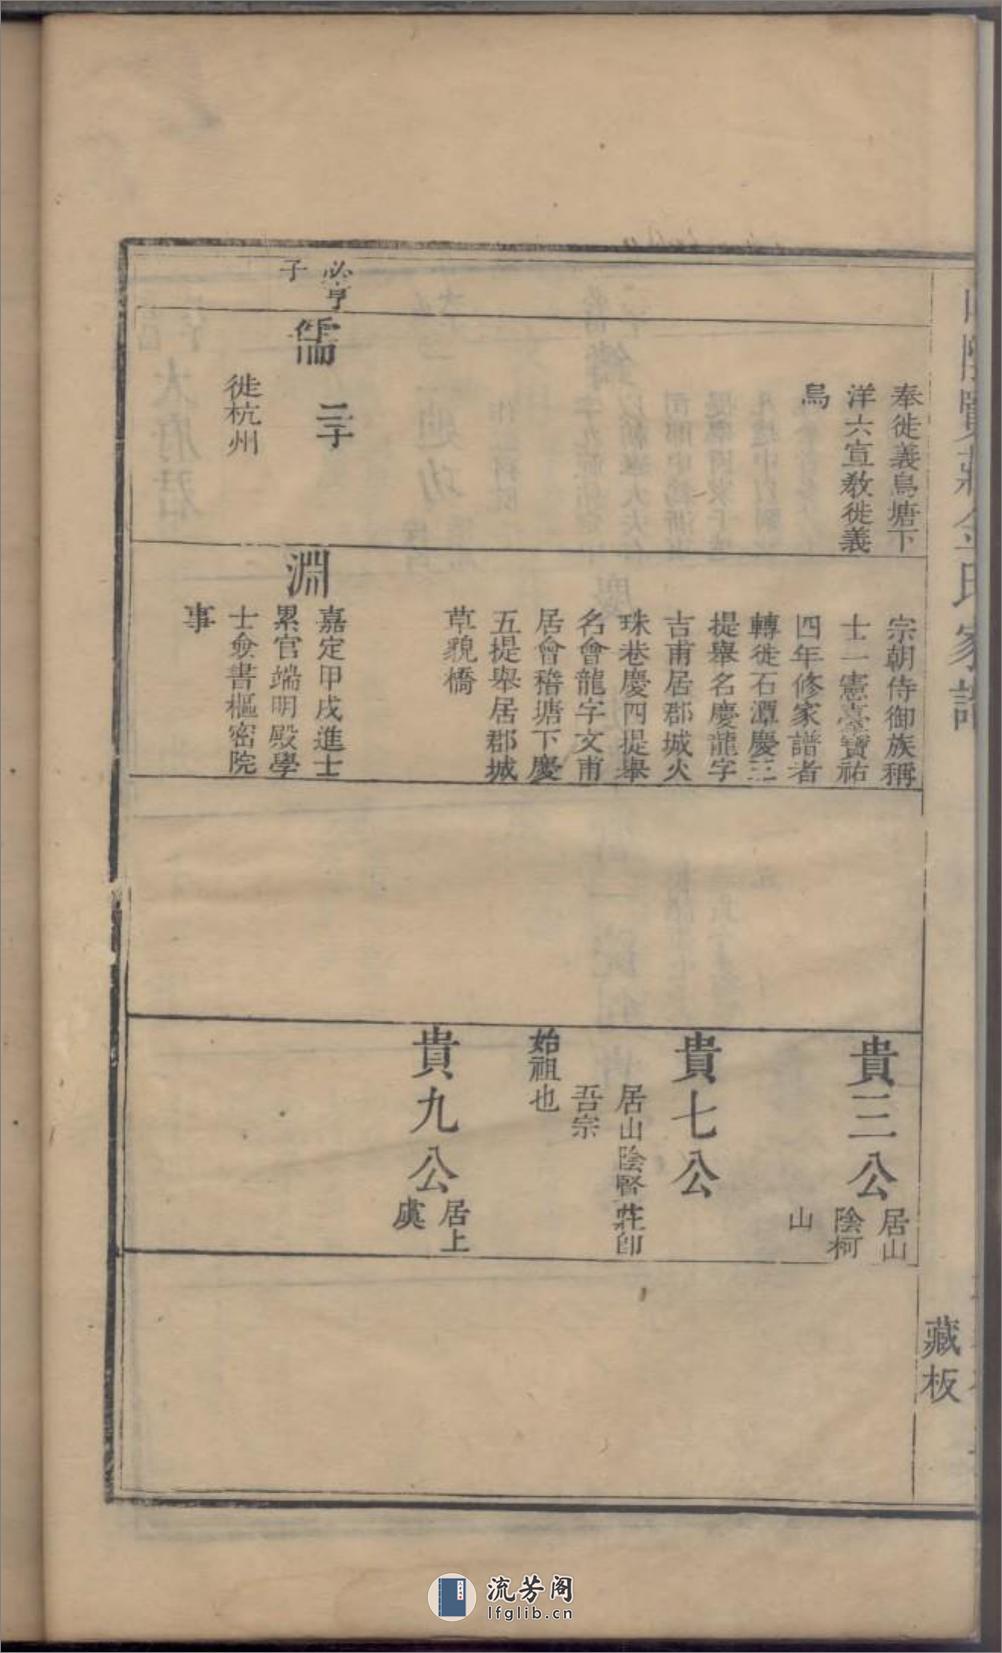 山陰賢莊金氏家譜
藏板
奉徙義烏塘下
洋六宣教徙義
烏
必亨
子
儒
三子
徙杭州
宗朝侍御族稱
士一憲臺寶祐
四年修家譜者
轉徙石潭慶三
提舉名慶龍字
吉甫居郡城火
珠巷慶四提舉
名會龍字文甫
居會稽塘下慶
五提舉居郡城
草貌橋
淵
嘉定甲戌進士
累官端明殿學
士僉書樞密院
事
貴三公
居山
陰柯
山
貴七公
居山陰賢莊卽
吾宗
始祖也
貴九公
居上
虞
流芳阁
lfglib.cn